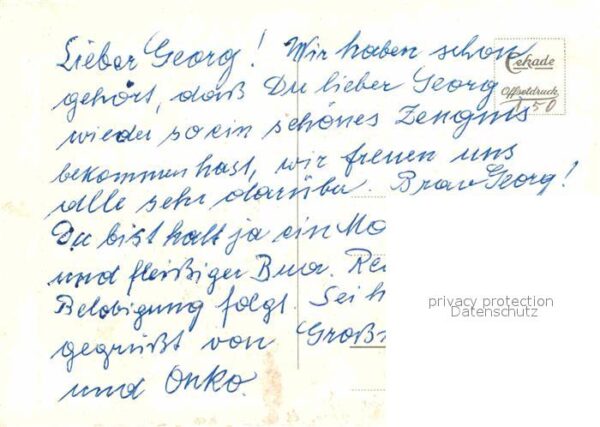 Lieber Georg! Wir haben schon
gehört, daß Du lieber Georg
wieder so ein schönes Zeugnis
bekommen hast, wir freuen uns
alle sehr darüber. Brav Georg!
Du bist halt ja ein
und fleißiger Bua.
Belobigung folgt. Sei
gegrüßt von
und Onko.
Cekade
Offsetdruck
1.50
privacy protection
Datenschutz